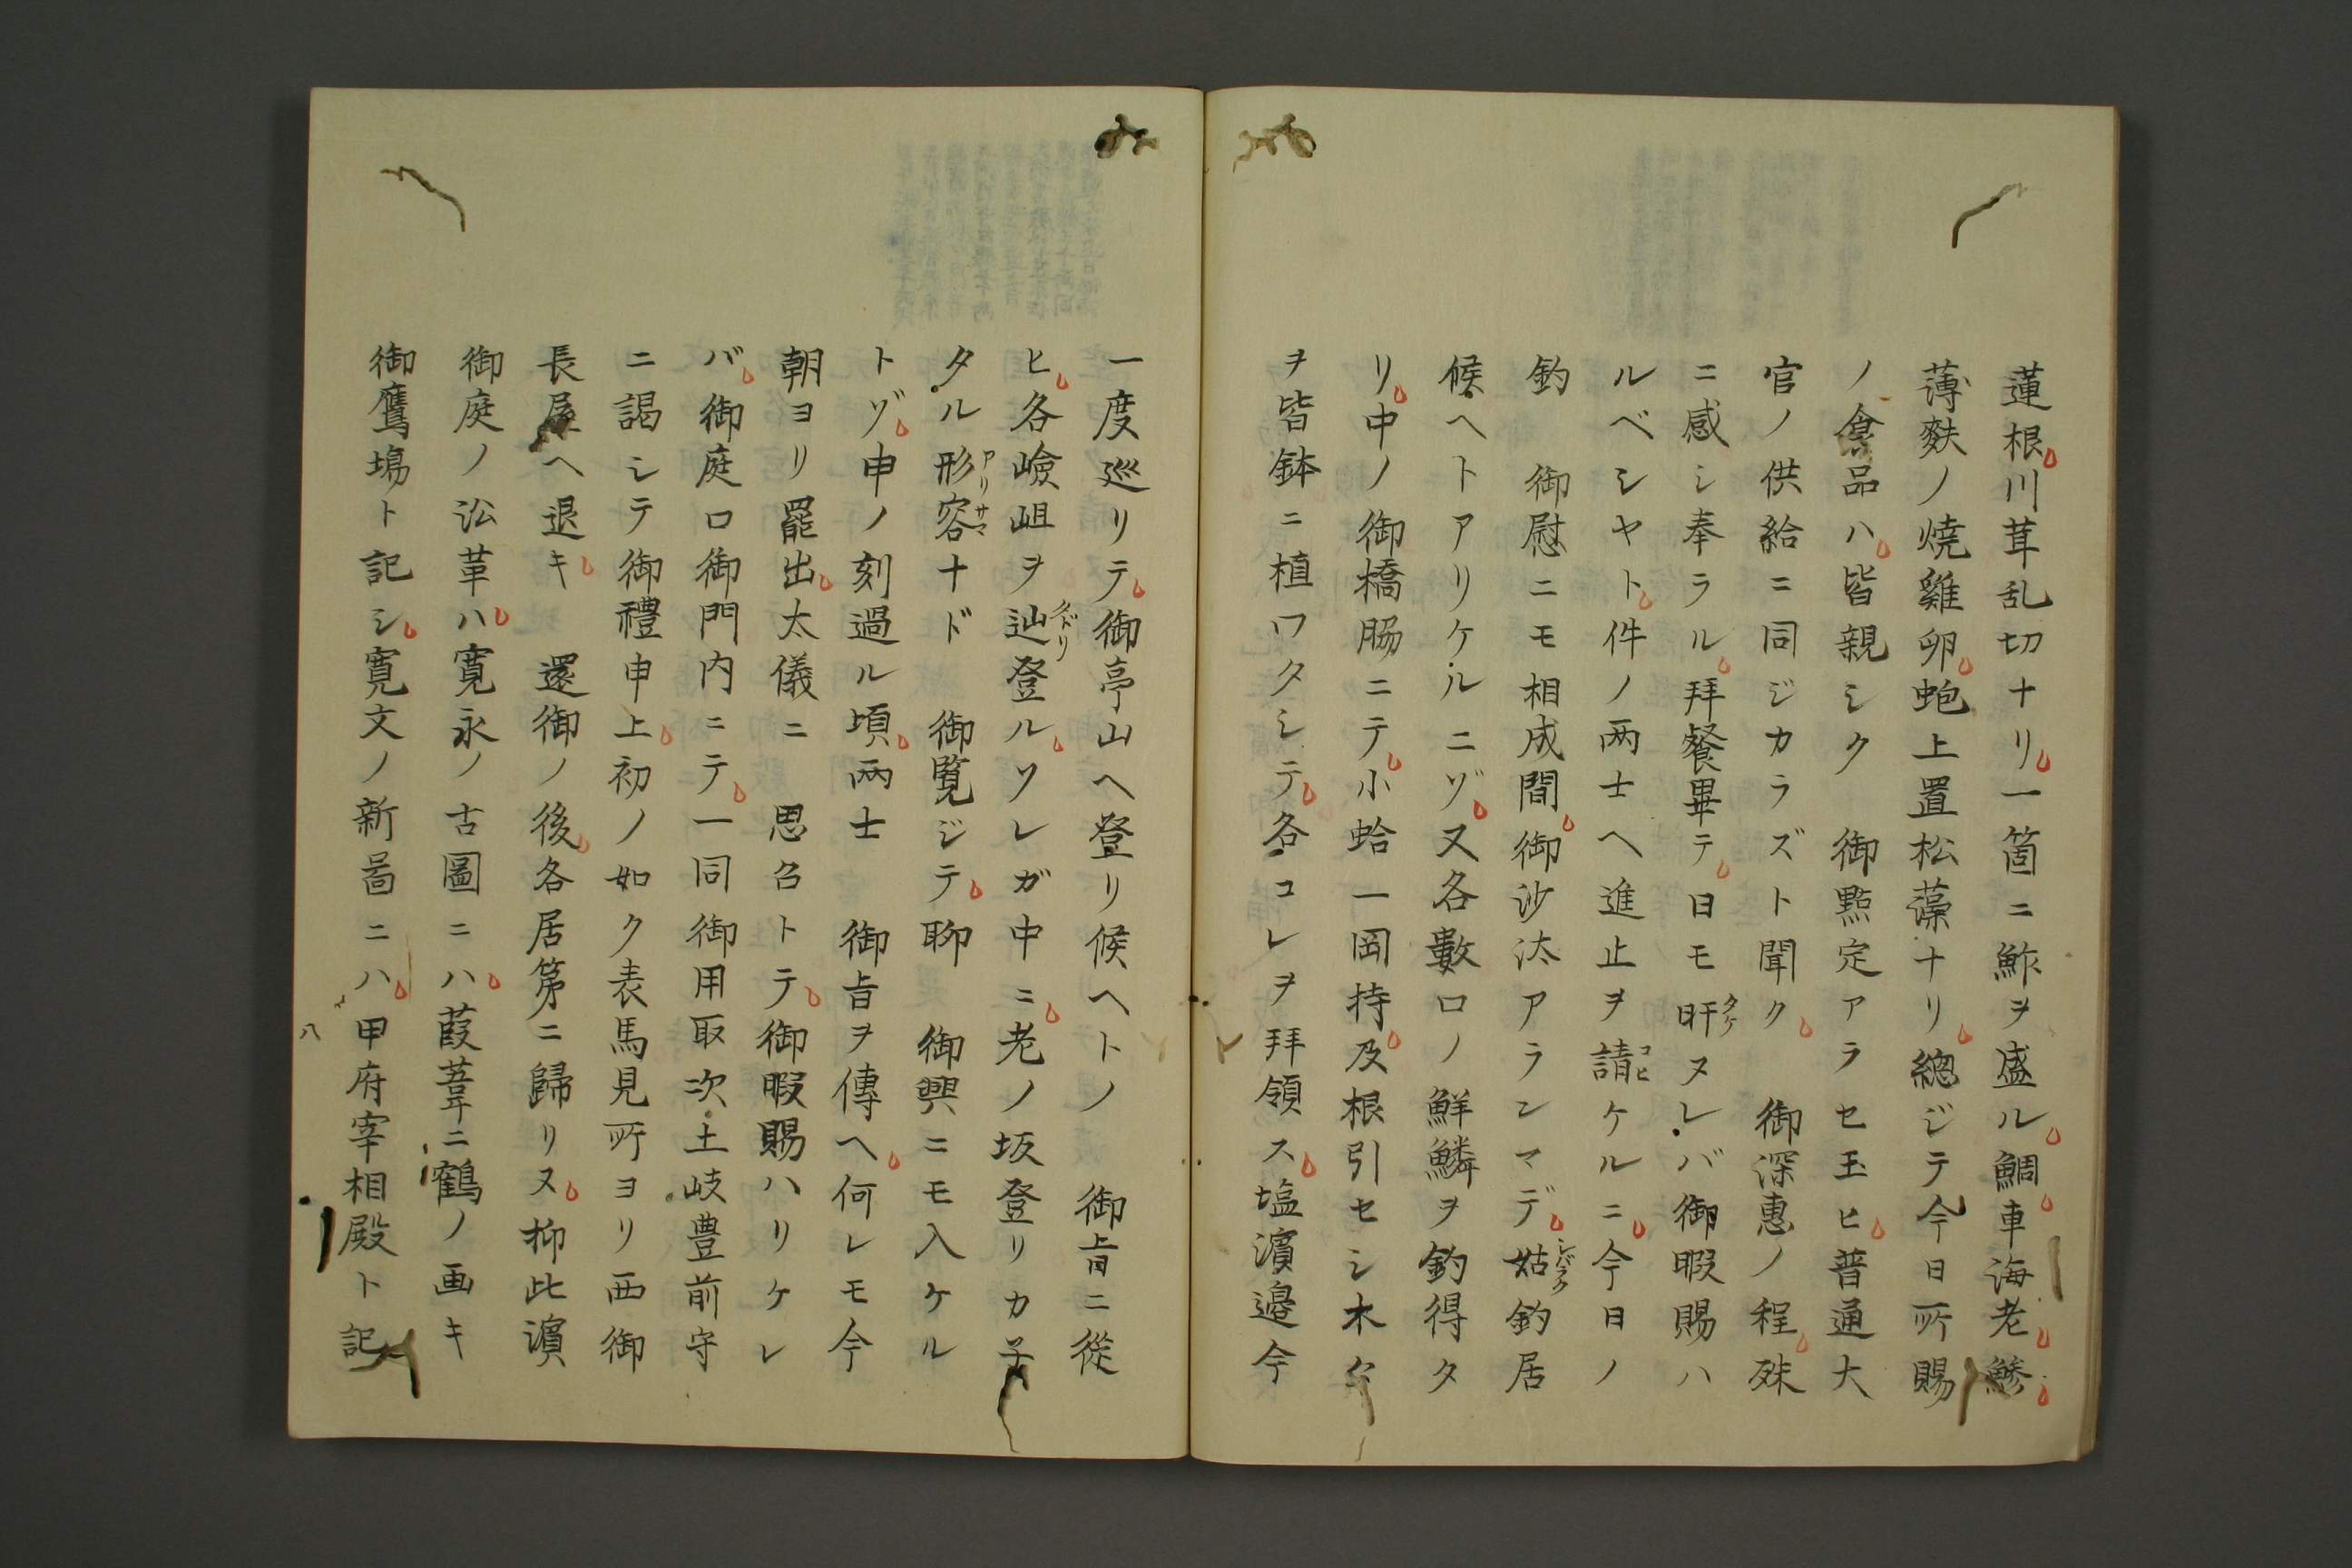 蓮根川茸乱切ナリ一箇ニ鮓ヲ盛ル鯛車海老鯵
薄麩ノ焼雞卵蚫上置松藻ナリ總ジテ今日所賜
ノ食品ハ皆親シク　御㸃定アラセ玉ヒ普通大
官ノ供給ニ同ジカラズト聞ク　御深惠ノ程殊
ニ感シ奉ラル拜餐畢テ日モ旰ヌレバ御暇賜ハ
タケ
ルベシヤト件ノ兩士ヘ進止ヲ請ケルニ今日ノ
コヒ
釣　御慰ニモ相成間御沙汰アランマデ姑釣居
シバラク
候ヘトアリケルニゾ又各數口ノ鮮鱗ヲ釣得タ
リ中ノ御橋脇ニテ小蛤一岡持及根引セシ木
ヲ皆鉢ニ植ワタシテ各コレヲ拜領ス塩濵邉今
一度巡リテ御亭山ヘ登リ候ヘトノ　御旨ニ從
ヒ各嶮岨ヲ辿登ルソレガ中ニ老ノ坂登リカ子
タドリ
タル形容ナド　御覧ジテ聊　御興ニモ入ケル
アリサマ
トゾ申ノ刻過ル頃兩士　御旨ヲ傳ヘ何レモ今
朝ヨリ罷出太儀ニ　思召トテ御暇賜ハリケレ
バ御庭口御門内ニテ一同御用取次土岐豊前守
ニ謁シテ御禮申上初ノ如ク表馬見所ヨリ西御
長屋ヘ退キ　還御ノ後各居第ニ歸リヌ抑此濵
御庭ノ㳂革ハ寛永ノ古圖ニハ葭葦ニ鶴ノ画キ
御鷹塲ト記シ寛文ノ新啚ニハ甲府宰相殿ト記
八